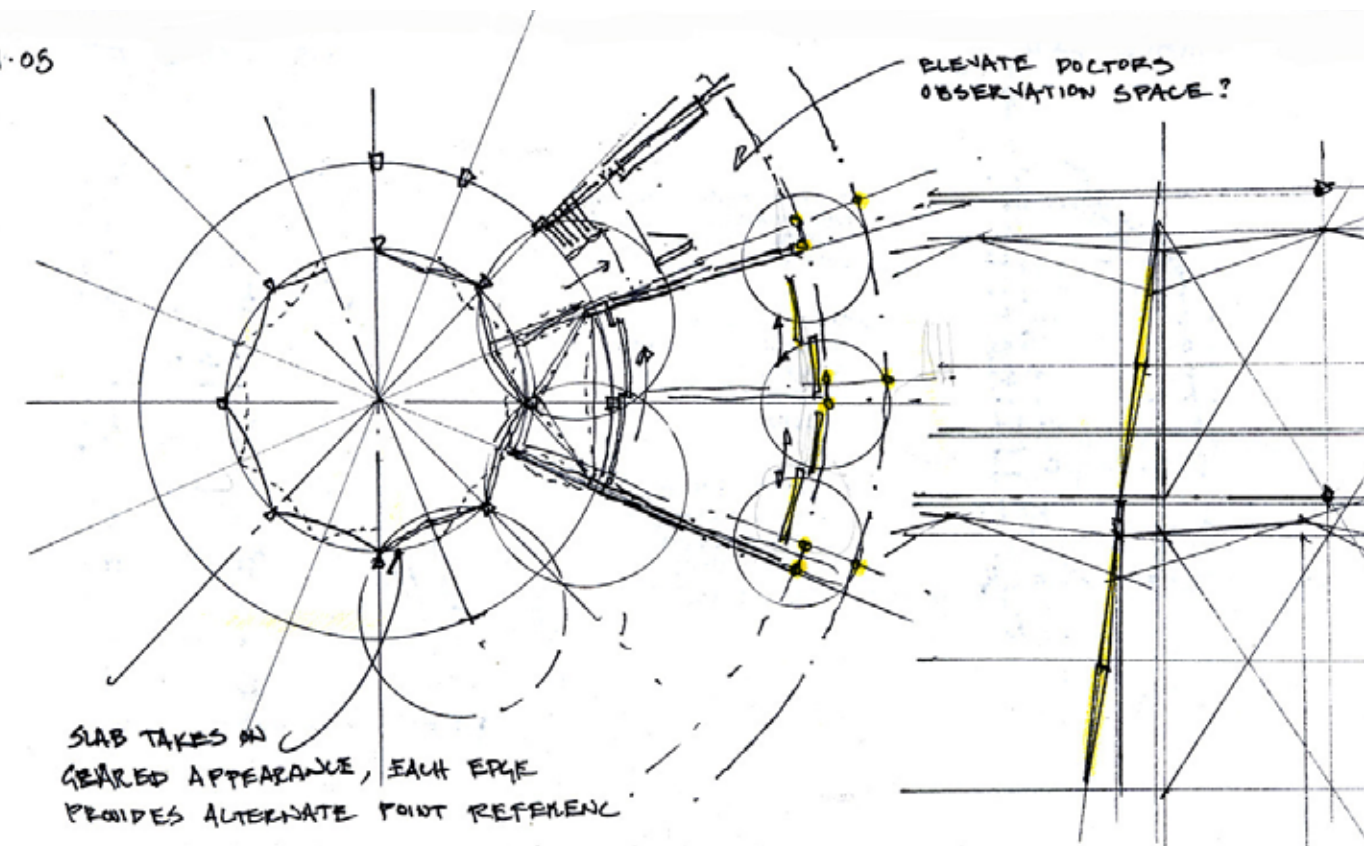 ·05
ELEVATE DOCTORS
OBSERVATION SPACE?
SLAB TAKES ON
GEARED APPEARANCE, EACH EDGE
PROVIDES ALTERNATE POINT REFERENC